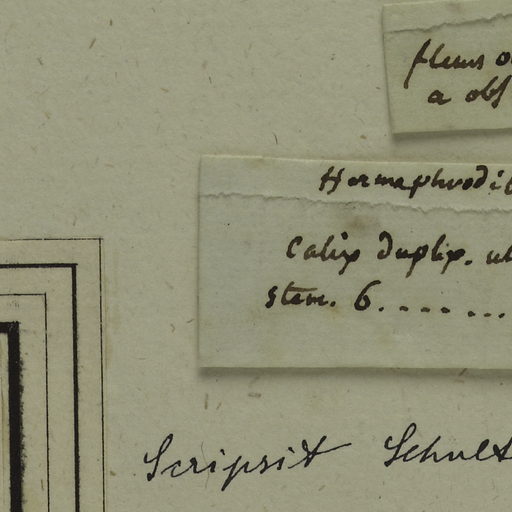 flems o
a obs
Hermaphrodit
Calix duplix. ul
stem. 6........
Scripsit Schult